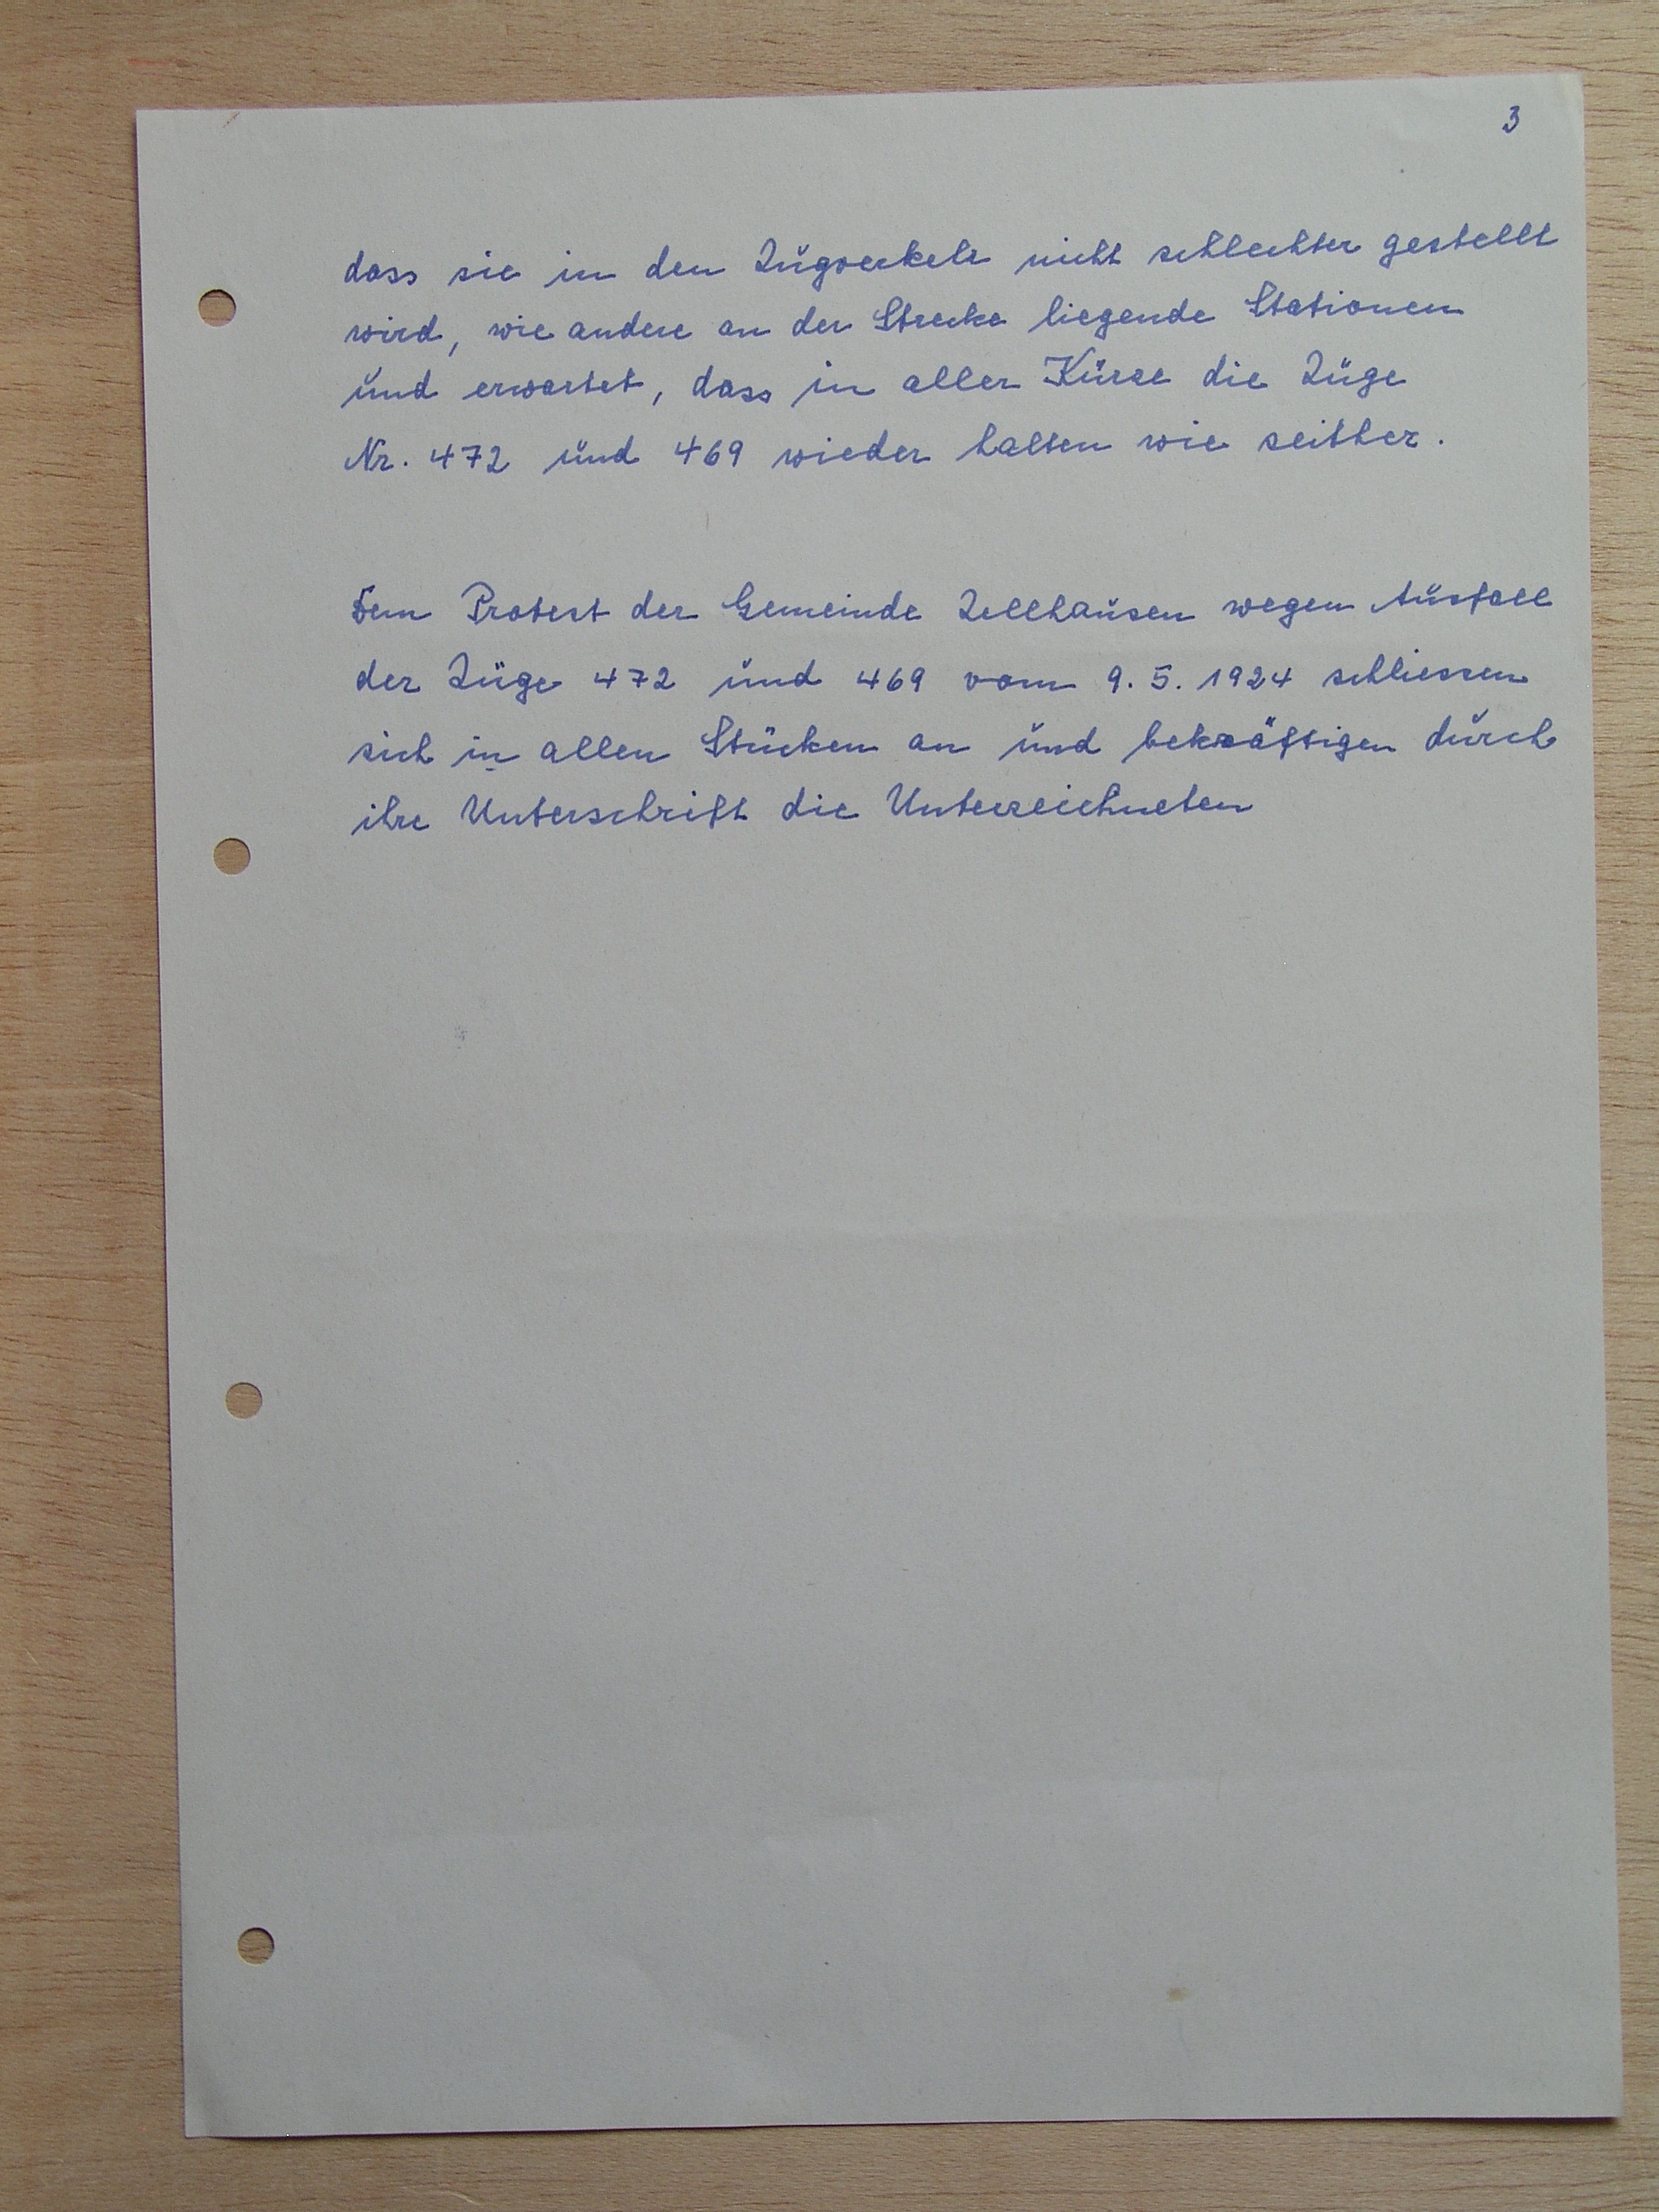 3
dass sie in den Zugverkehr nicht schlechter gestellt
wird, wie andere an der Strecke liegende Stationen
und erwartet, dass in aller Kürze die Züge
Nr. 472 und 469 wieder halten wie seither.
Dem Protest der Gemeinde Zellhausen wegen Ausfall
der Züge 472 und 469 vom 9. 5. 1924 schliessen
sich in allen Stücken an und bekräftigen durch
ihre Unterschrift die Unterzeichneten